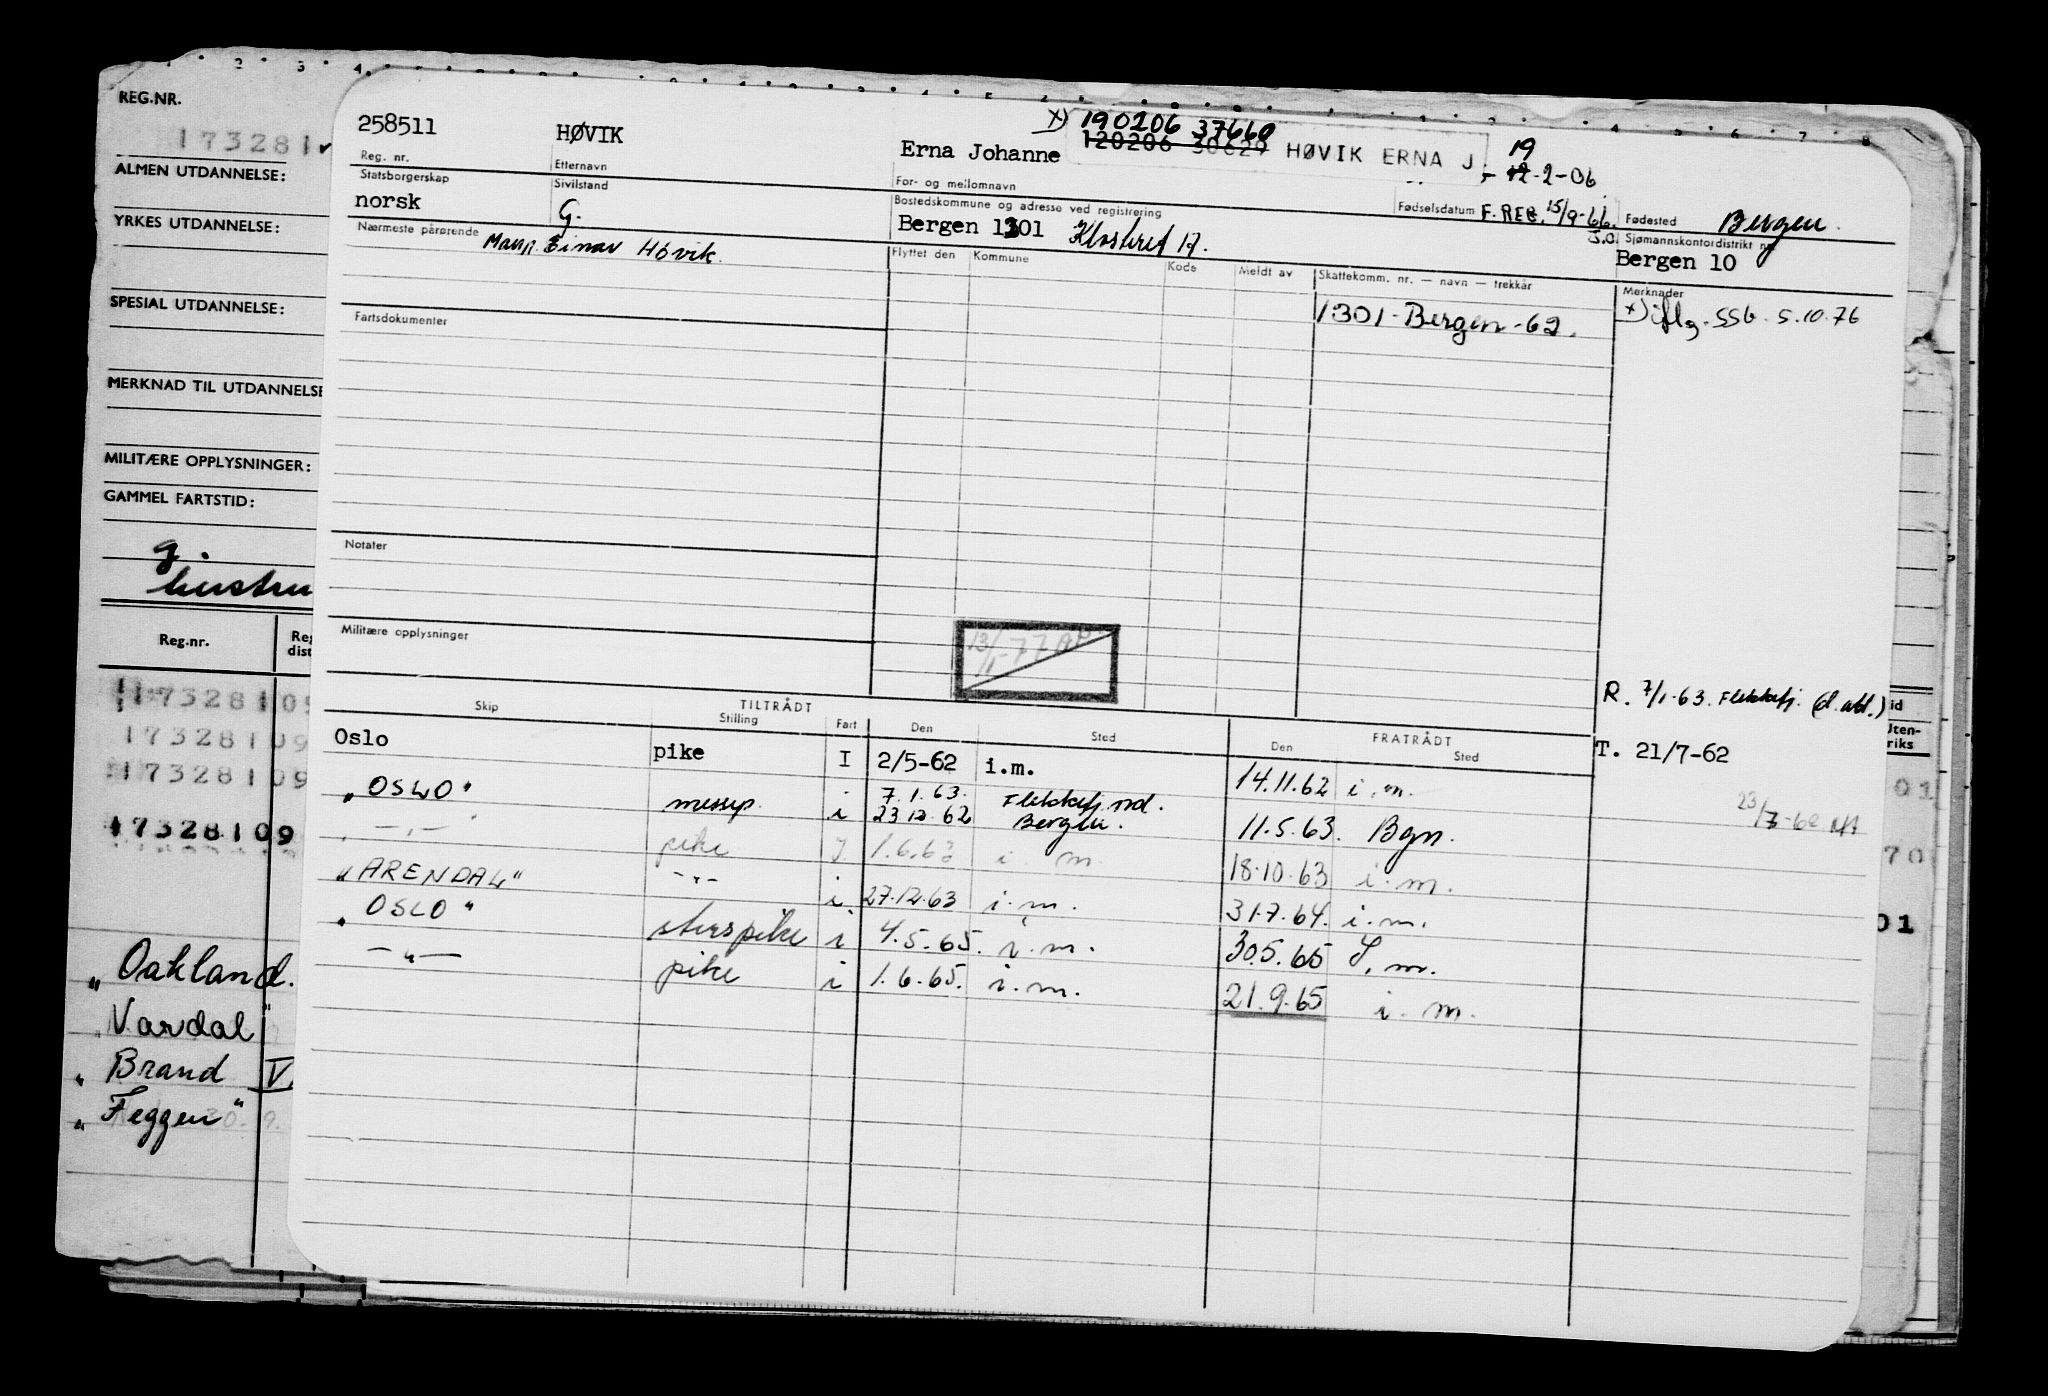 REG.NR.
173281
ALMEN UTDANNELSE:
YRKES UTDANNELSE:
SPESIAL UTDANNELSE:
MERKNAD TIL UTDANNELSE
MILITÆRE OPPLYSNINGER:
GAMMEL FARTSTID:
g.
hustru
Reg.nr.
173281 09
173281 09
173281 09
173281 09
"Oakland.
"Vardal"
"Brand V.
"Feggen"
258511 HØVIK Erna Johanne x) 190206 37660
120206 30629 HØVIK ERNA J. 19
12-2-06
Reg. nr. Etternavn For- og mellomnavn Fødselsdatum F. REG. 15/9-66 Fødested Bergen.
Statsborgerskap Sivilstand Bostedskommune og adresse ved registrering Sjømannskontordistrikt nr.
norsk G. Bergen 1301 Klosteret 17. Bergen 10
Nærmeste pårørende Mann. Einar Høvik. Flyttet den Kommune Kode Meldt av Skattekomm. nr. — navn — trekkår Merknader
1301-Bergen-62. x) iflg. SSB. 5.10.76
Fartsdokumenter
Notater
Militære opplysninger
13/1-77
R. 7/1-63. Flekkefj. (d. avd.)
TILTRÅDT FRATRÅDT
Skip Stilling Fart Den Sted Den Sted
Oslo pike I 2/5-62 i.m. 14.11.62 i.m. T. 21/7-62
"OSLO" messep. i 7.1.63. Flekkefj.
23.12.62 Bergen. 11.5.63. Bgn.
— " — pike 1.6.63 i.m. 18.10.63 i.m.
"ARENDAL" — " — i. 27.12.63 i.m. 31.7.64. i.m.
"OSLO" i 4.5.65. i.m. 30.5.65 i.m.
— " — pike i 1.6.65. i.m. 21.9.65 i.m.
id
Uten-
riks
01
70
01